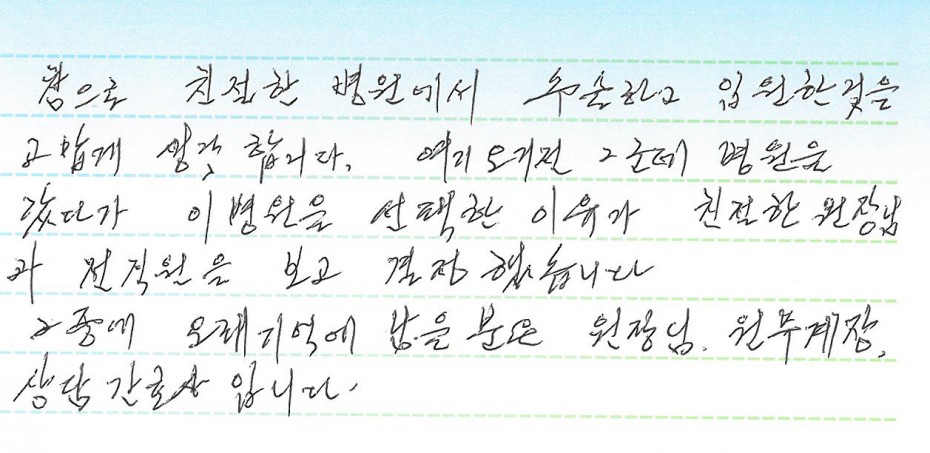 참으로 친절한 병원에서 수술하고 입원한것을
고맙게 생각합니다. 여기오기전 2군데 병원을
갔다가 이병원을 선택한 이유가 친절한 원장님
과 전직원을 보고 결정했습니다
그중에 오래기억에 남을분은 원장님. 원무계장.
상담간호사 입니다.